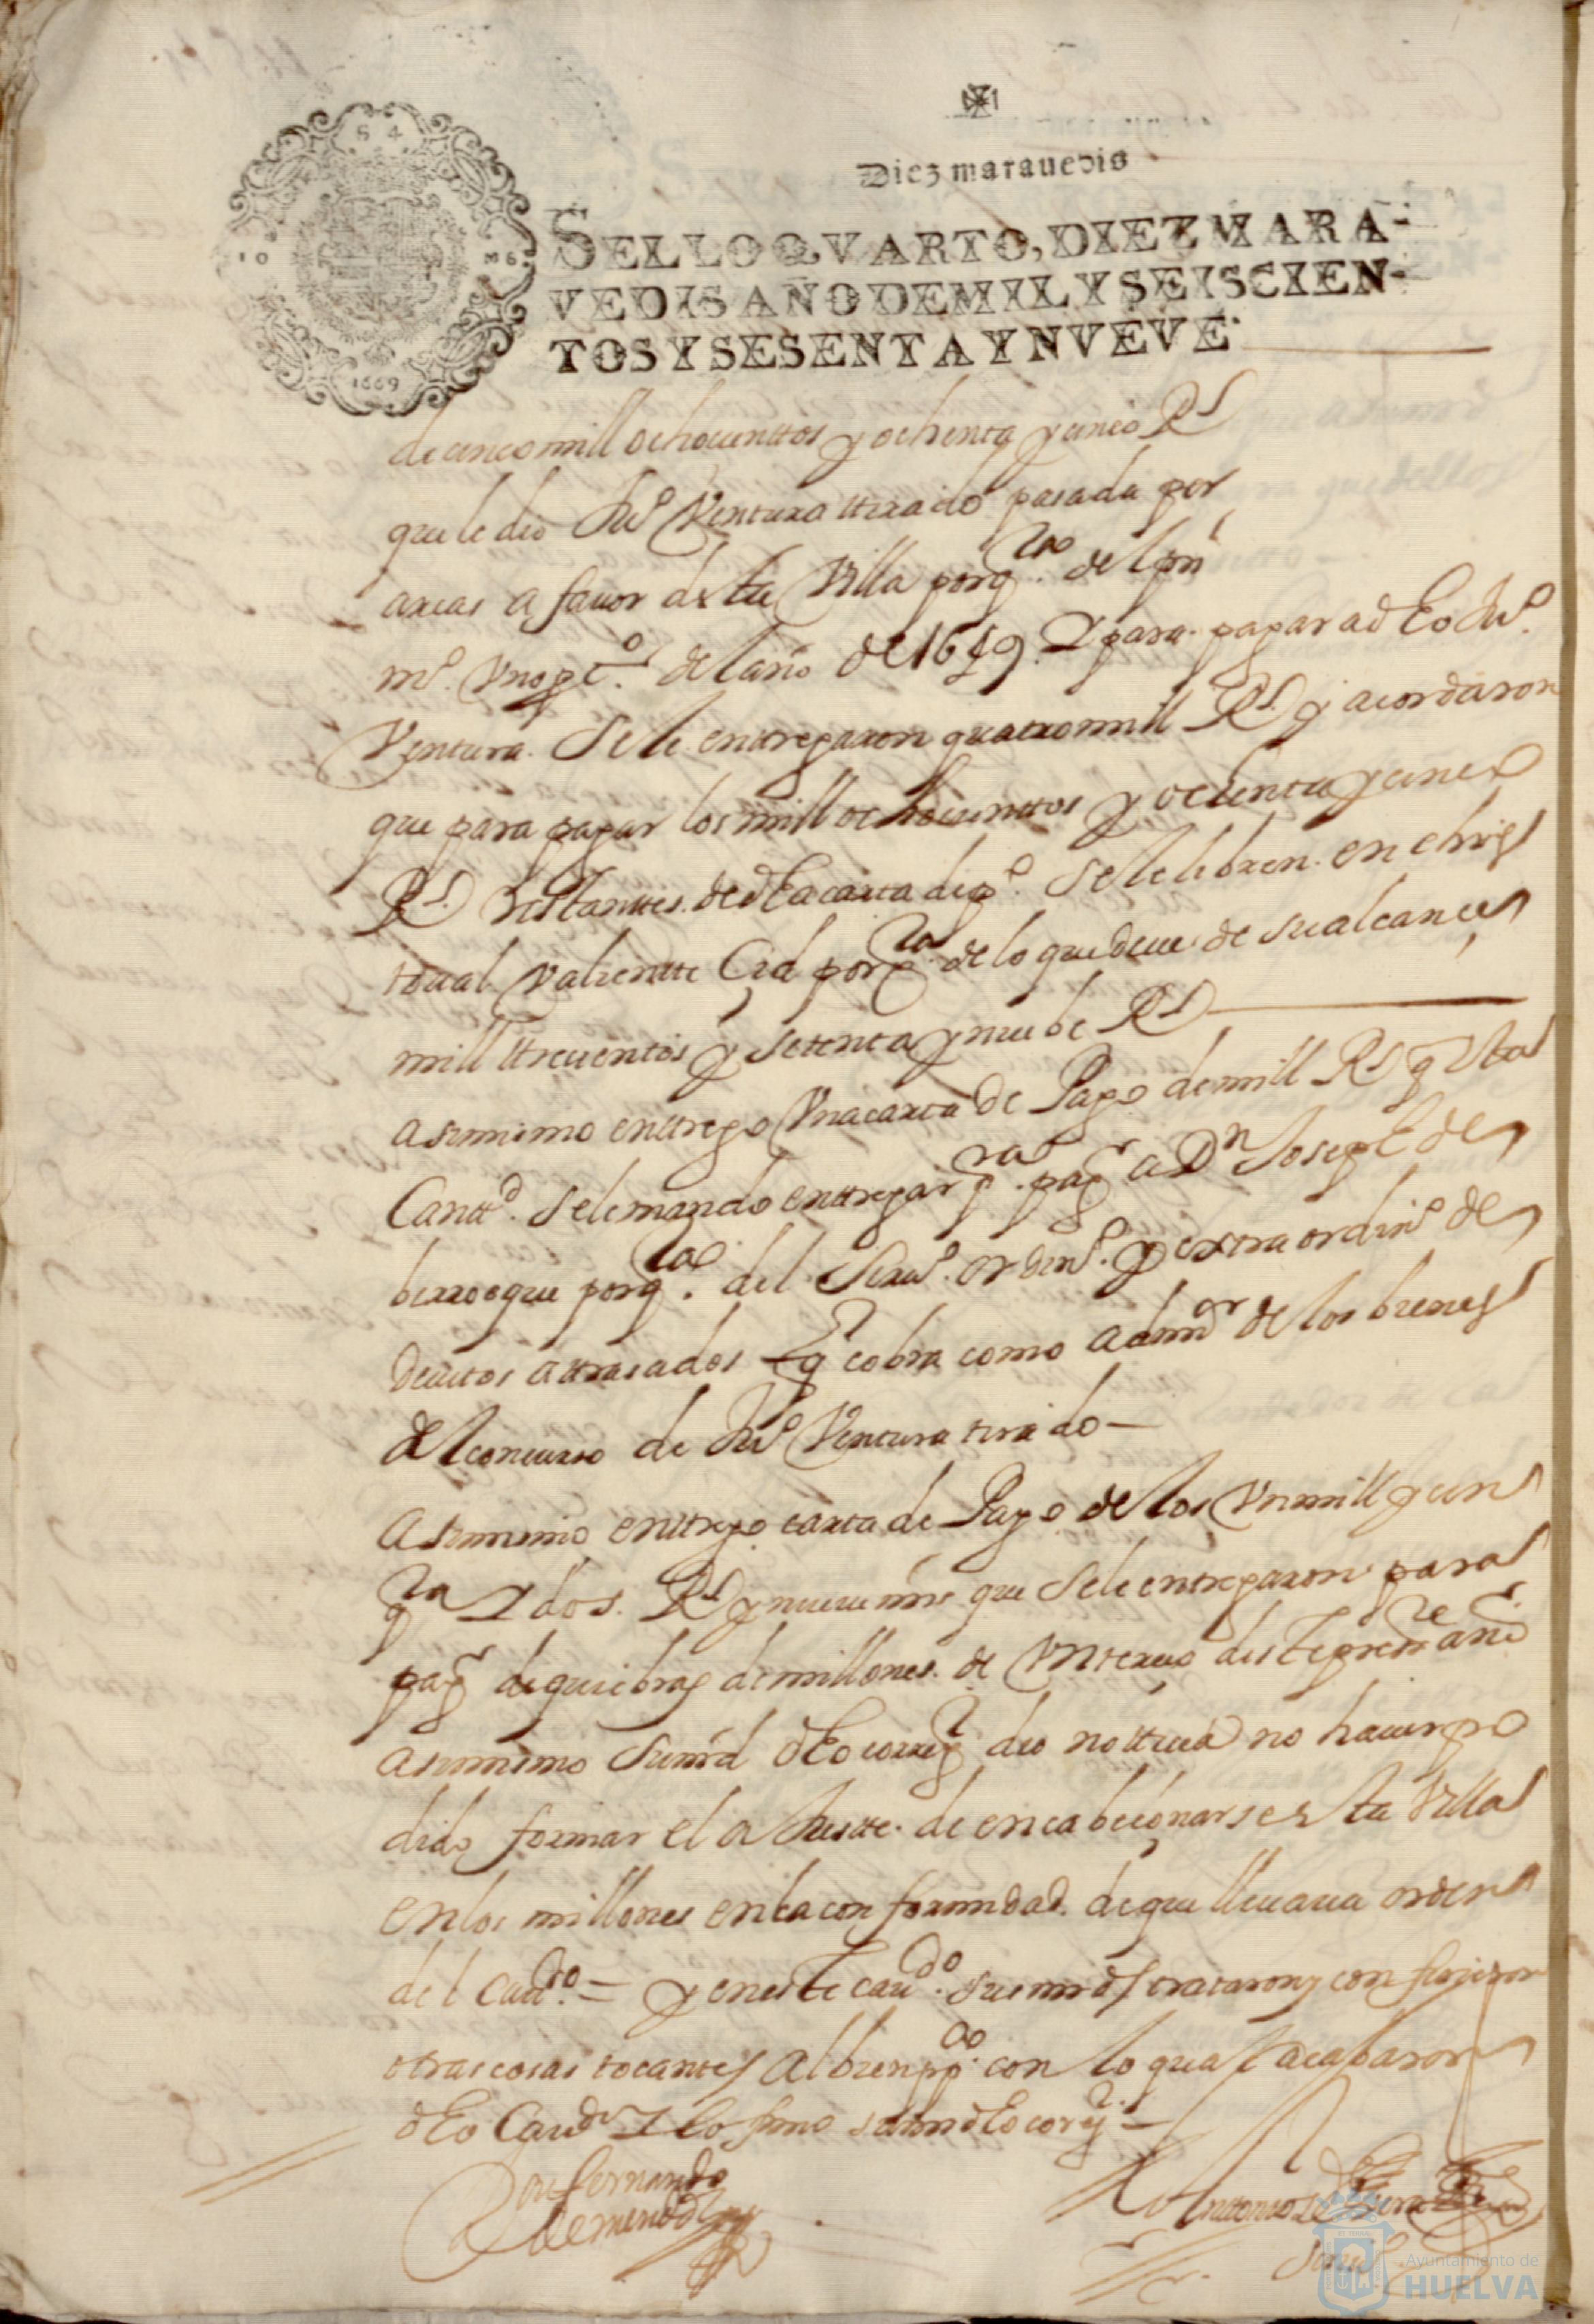 Diez marauedis
SELLO QVARTO, DIEZ MARA-
VEDIS AÑO DE MIL Y SEISCIEN-
TOS Y SESENTA Y NVEVE.
S 4
10 MS
1669
de cinco mill ochocienttos y ochenta y cinco Rs
que le dio Juo Ventura ttirado pasada por
arcas a fauor desta Villa por qta del pri
mo Uno pco del año de 1649 Y para pagar a dho Juo
Ventura se le enttregaron quatro mill Rs y acordaron
que para pagar los mill ochocienttos y ochenta y cinco
Rs resttanttes de dha carta de po se le libren en chris
toual Valientte Cid por qta de lo que deue de su alcance
mill ttrecientos y setenta y nuebe Rs
asimismo enttrego Una carta de Pago de mill Rs q esta
Canttd se le mando enttregar pra pagr a Dn Joseph de
berroeque por qta del seruo ordino y extraordino de
deuitos attrasados q cobra como admor de los bienes
del concurso de Juo Ventura tirado
asimismo enttrego carta de Pago de los Un mill y cin
qta Y dos Rs y nueue mrs que se le entregaron para
pagr de quiebras de millones de Un tercio deste presste año
asimismo su md dho correxr dio notticia no hauer po
dido formar el ajustte de encabeçonarse esta Villa
en los millones en la conformidad de que lleuaua orden
del caudo = y en este caudo sus mrds trataron y confirieron
otras cosas tocantes al bien ppco con lo qual acabaron
dho Caudo Y lo firmo su md dho corexr =
Don fernando
de mendoça
Anttonio de
Ayuntamiento de
HUELVA